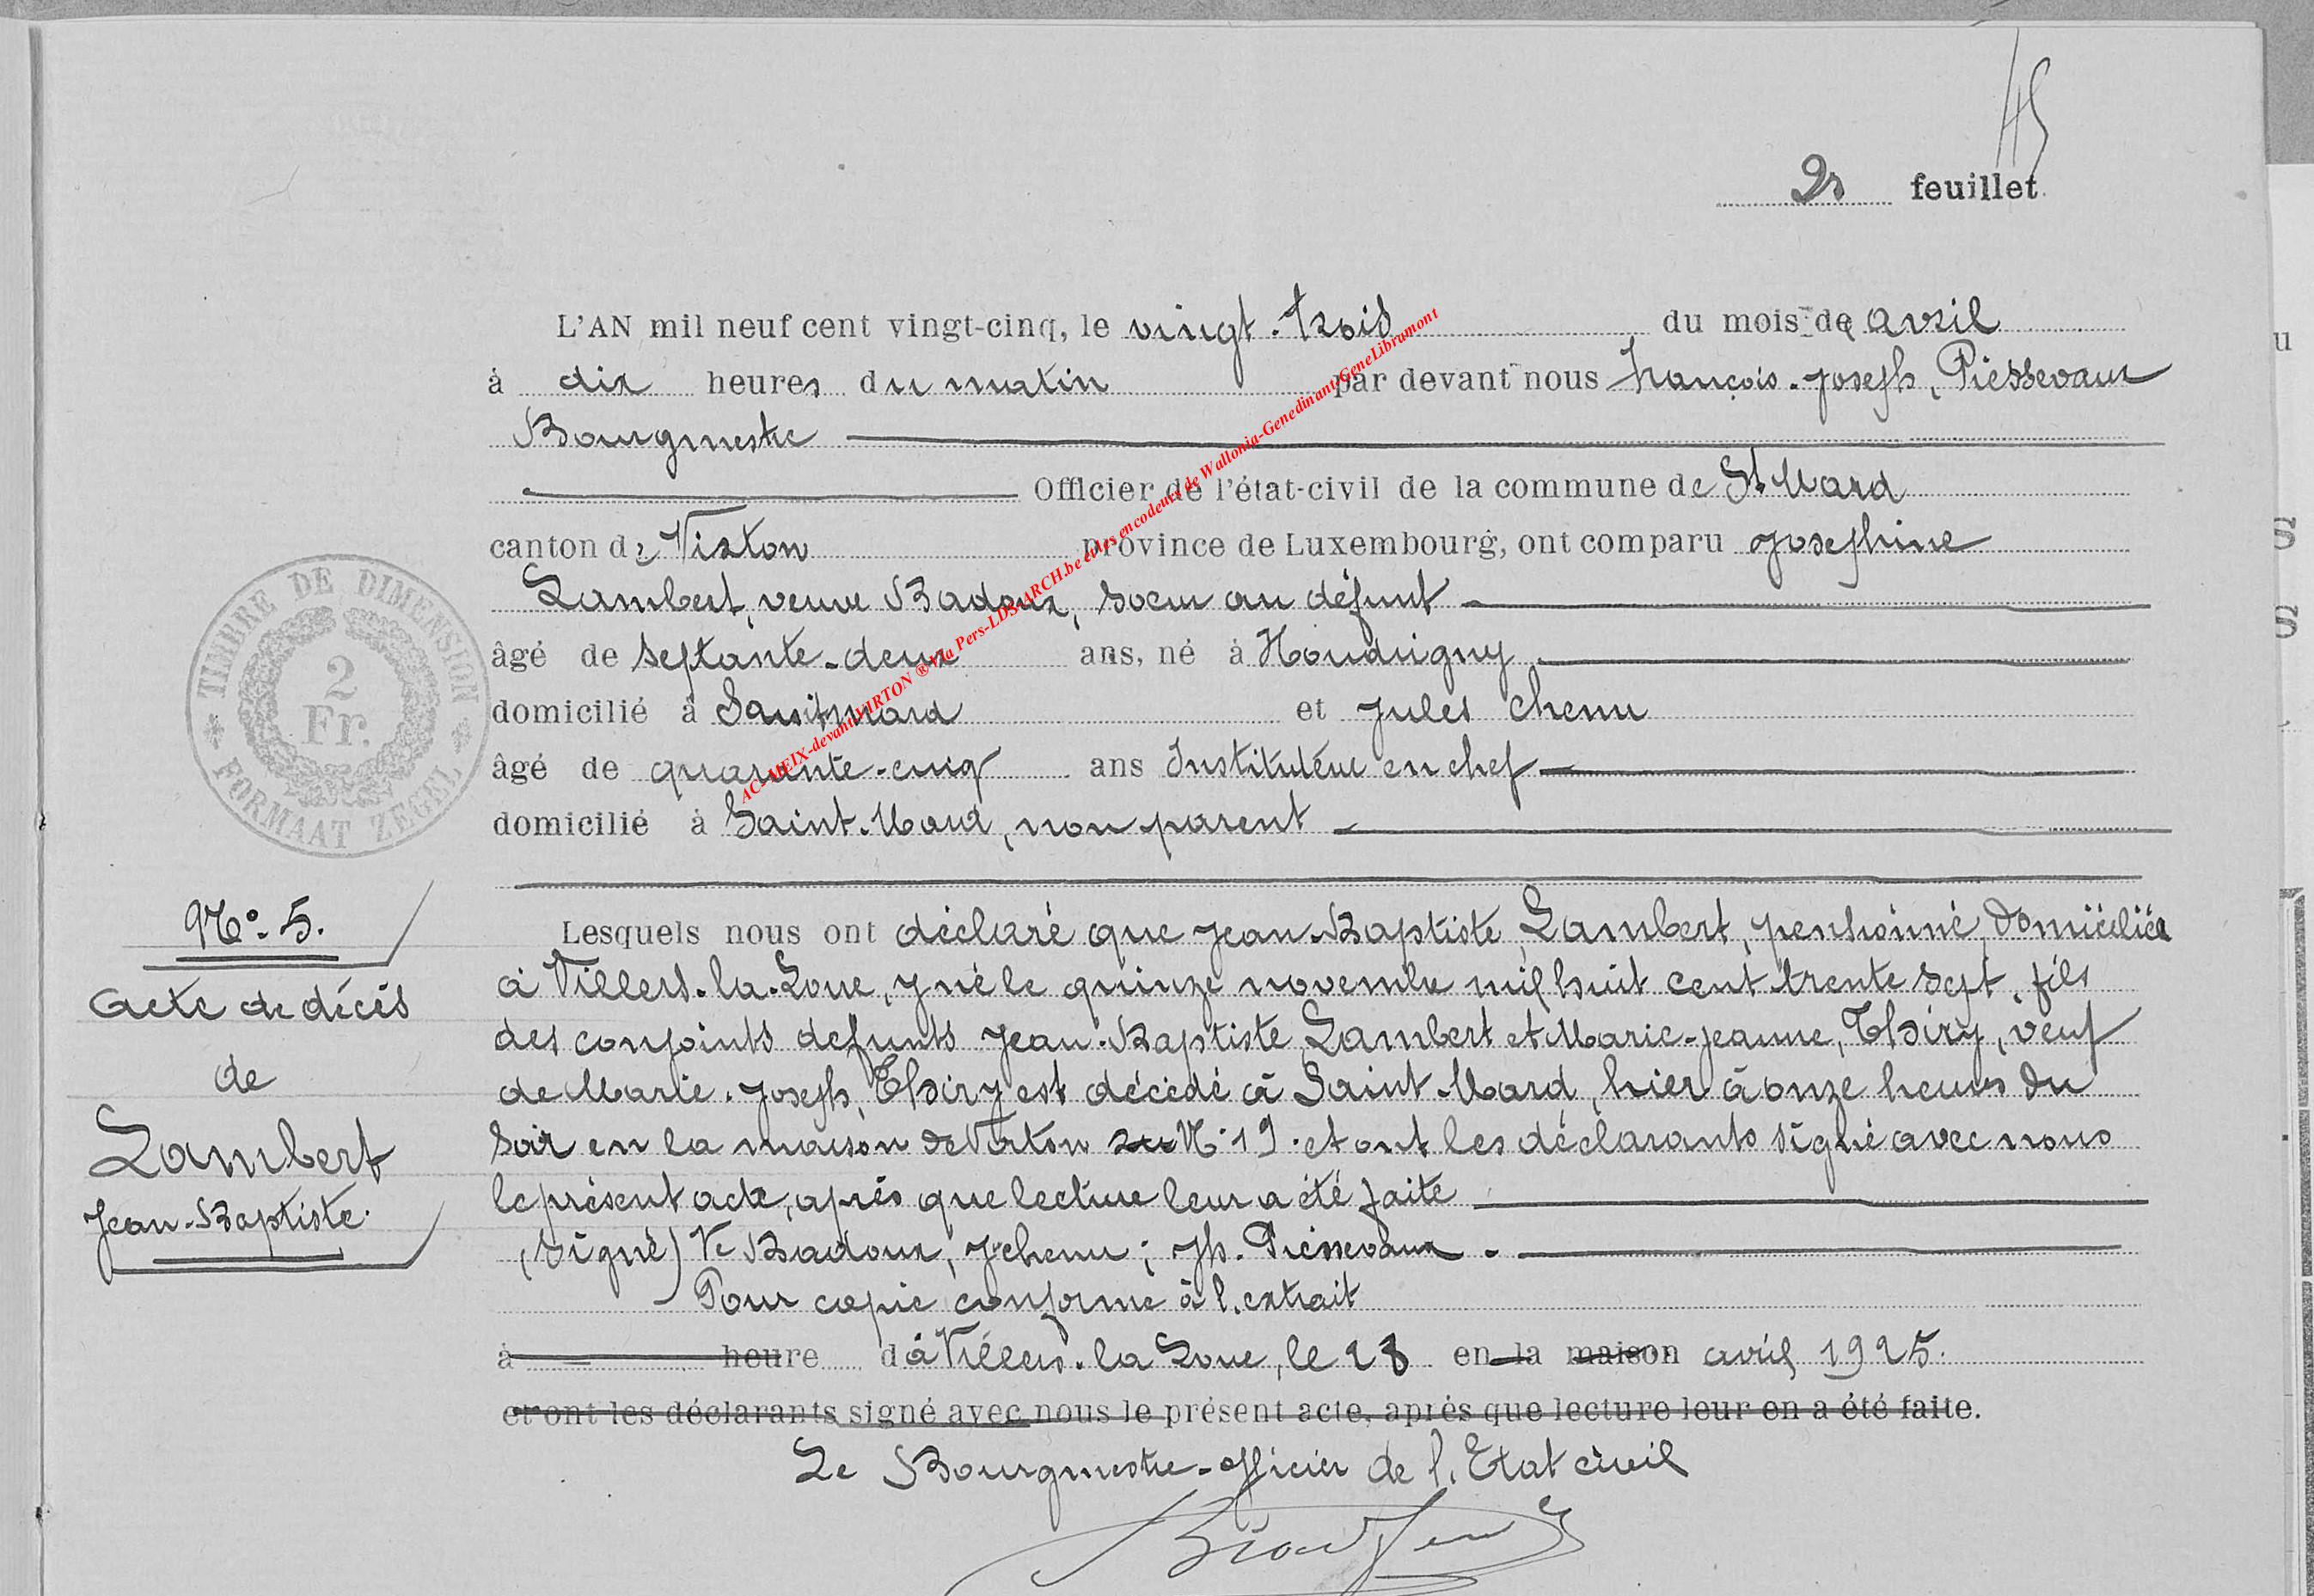 45
2s feuillet
L'AN mil neuf cent vingt-cinq, le vingt-trois du mois de avril
à dix heures du matin par devant nous François-Joseph, Piessevaux
Bourgmestre
Officier de l'état-civil de la commune de St Mard
canton de Virton province de Luxembourg, ont comparu Josephine
Lambert, veuve Badoux, soeur au défunt
âgé de septante-deux ans, né à Houdrigny
domicilié à Saintmard et Jules Chenu
âgé de quarante-cinq ans Instituteur en chef
domicilié à Saint-Mard, non parent
TIMBRE DE DIMENSION
2
Fr.
FORMAAT ZEGEL
No. 5.
Acte de décès
de
Lambert
Jean-Baptiste.
Lesquels nous ont déclaré que Jean-Baptiste, Lambert, pensionné, domicilié
à Villers-la-Loue, y né le quinze novembre mil huit cent trente sept, fils
des conjoints defunts Jean-Baptiste Lambert et Marie-Jeanne, Thiry, veuf
de Marie-Joseph, Thiry est décédé à Saint-Mard, hier à onze heures du
soir en la maison de Virton N° 19. et ont les déclarants signé avec nous
le présent acte, après que lecture leur a été faite
(Signé) Ve Badoux, J Chenu; Jh. Piessevaux.
Pour copie conforme à l'extrait
à heure d à Villers-la Loue, le 28 en la maison avril 1925.
et ont les déclarants signé avec nous le présent acte, après que lecture leur en a été faite.
Le Bourgmestre-officier de l'Etat civil
AC-MEIX-devant-VIRTON ® via Pers-LDS-ARCH.be et les encodeurs de Wallonia-Genedinant-GeneLibramont